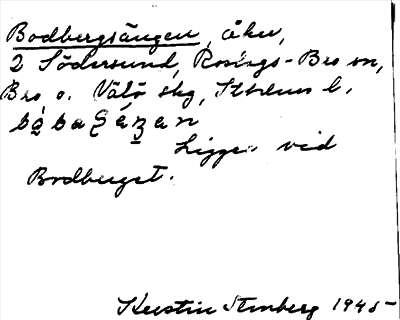 Bodbergsängen, åker,
2 Södersund, Roslags-Bro sn,
Bro o. Vätö skg, Sthlms l.
Ligger vid
Bodberget.
Kerstin Stenberg 1945